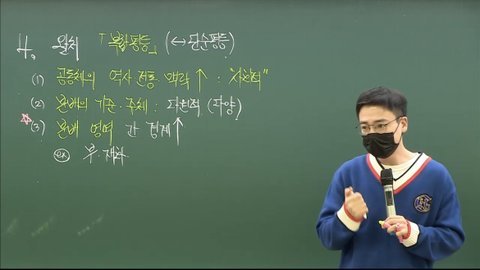 4. 월처 「복합평등」 (↔단순평등)
(1) 공동체의 역사 전통 맥락↑ : 가치적"
(2) 분배의 기준·주체 : 다원적 (다양)
☆(3) 분배 영역 간 경계↑
ex) 부